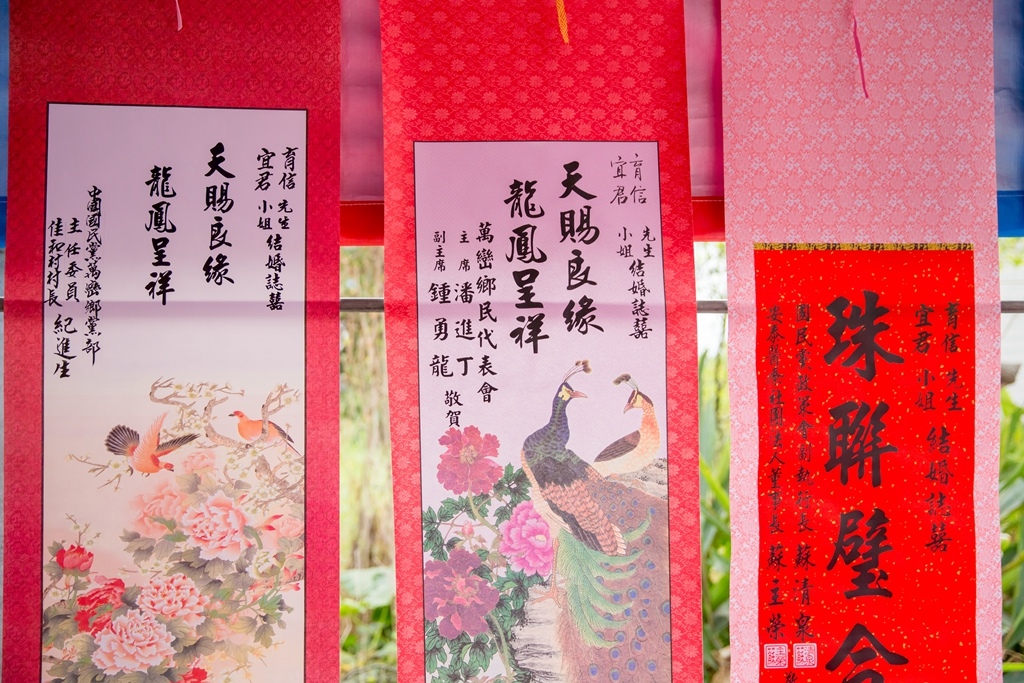 育信 先生
宜君 小姐 結婚誌囍
天賜良緣
龍鳳呈祥
中國國民黨萬巒鄉黨部
主任委員
佳和村村長 紀進生
育信 先生
宜君 小姐 結婚誌囍
天賜良緣
龍鳳呈祥
萬巒鄉民代表會
主席 潘進丁
副主席 鍾勇龍
敬賀
育信 先生
宜君 小姐 結婚誌囍
珠聯璧合
國民黨政策會副執行長 蘇清泉
安泰醫療社團法人董事長 蘇主榮